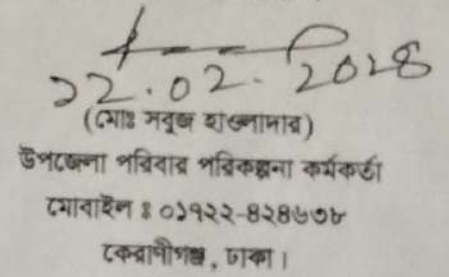 ২২.০২.২০২৪
(মোঃ সবুজ হাওলাদার)
উপজেলা পরিবার পরিকল্পনা কর্মকর্তা
মোবাইল ঃ ০১৭২২-৪২৪৬৩৮
কেরাণীগঞ্জ, ঢাকা।